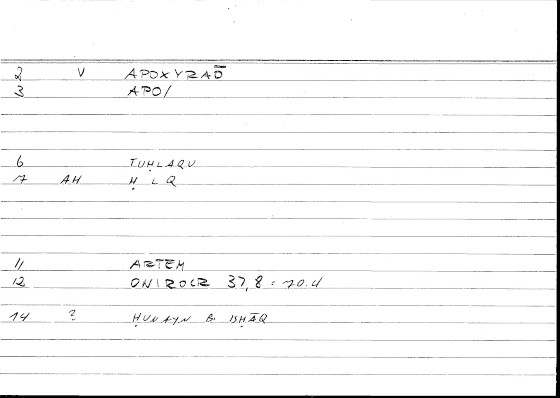 2 V APOXYRAŌ
3 APO/
6 TUḤLAQU
7 AH Ḥ L Q
11 ARTEM
12 ONIROCR 37,8 = 70.4
14 ? ḤUNAYN B ISḤĀQ